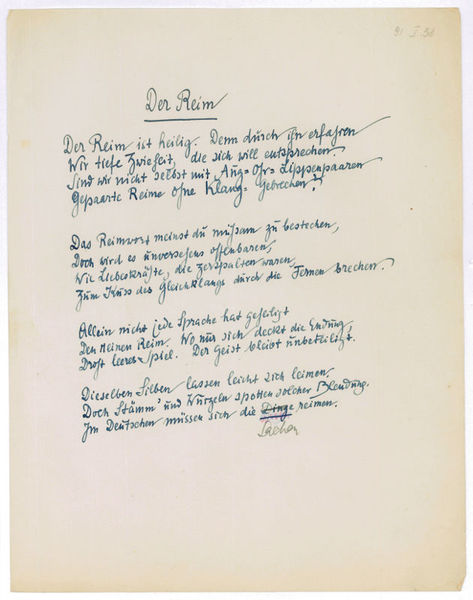 31 I 38
Der Reim
Der Reim ist heilig. Denn durch ihn erfahren
Wir tiefe Zwieheit, die sich will entsprechen.
Sind wir nicht selbst mit Aug= Ohr= Lippenpaaren
Gepaarte Reime ohne Klang=Gebrechen?
Das Reimwort meinst du mühsam zu bestechen,
Doch wird es unversehens offenbaren,
Wie Liebeskräfte, die zerspalten waren,
Zum Kuss des Gleichklangs durch die Fernen brechen.
Allein nicht jede Sprache hat geheiligt
Den reinen Reim. Wo nur sich deckt die Endung,
Droht leeres Spiel. Der Geist bleibt unbeteiligt.
Dieselben Silben lassen leicht sich leimen,
Doch Stämm' und Wurzeln spotten solcher Blendung.
Im Deutschen müssen sich die Dinge reimen.
Sachen